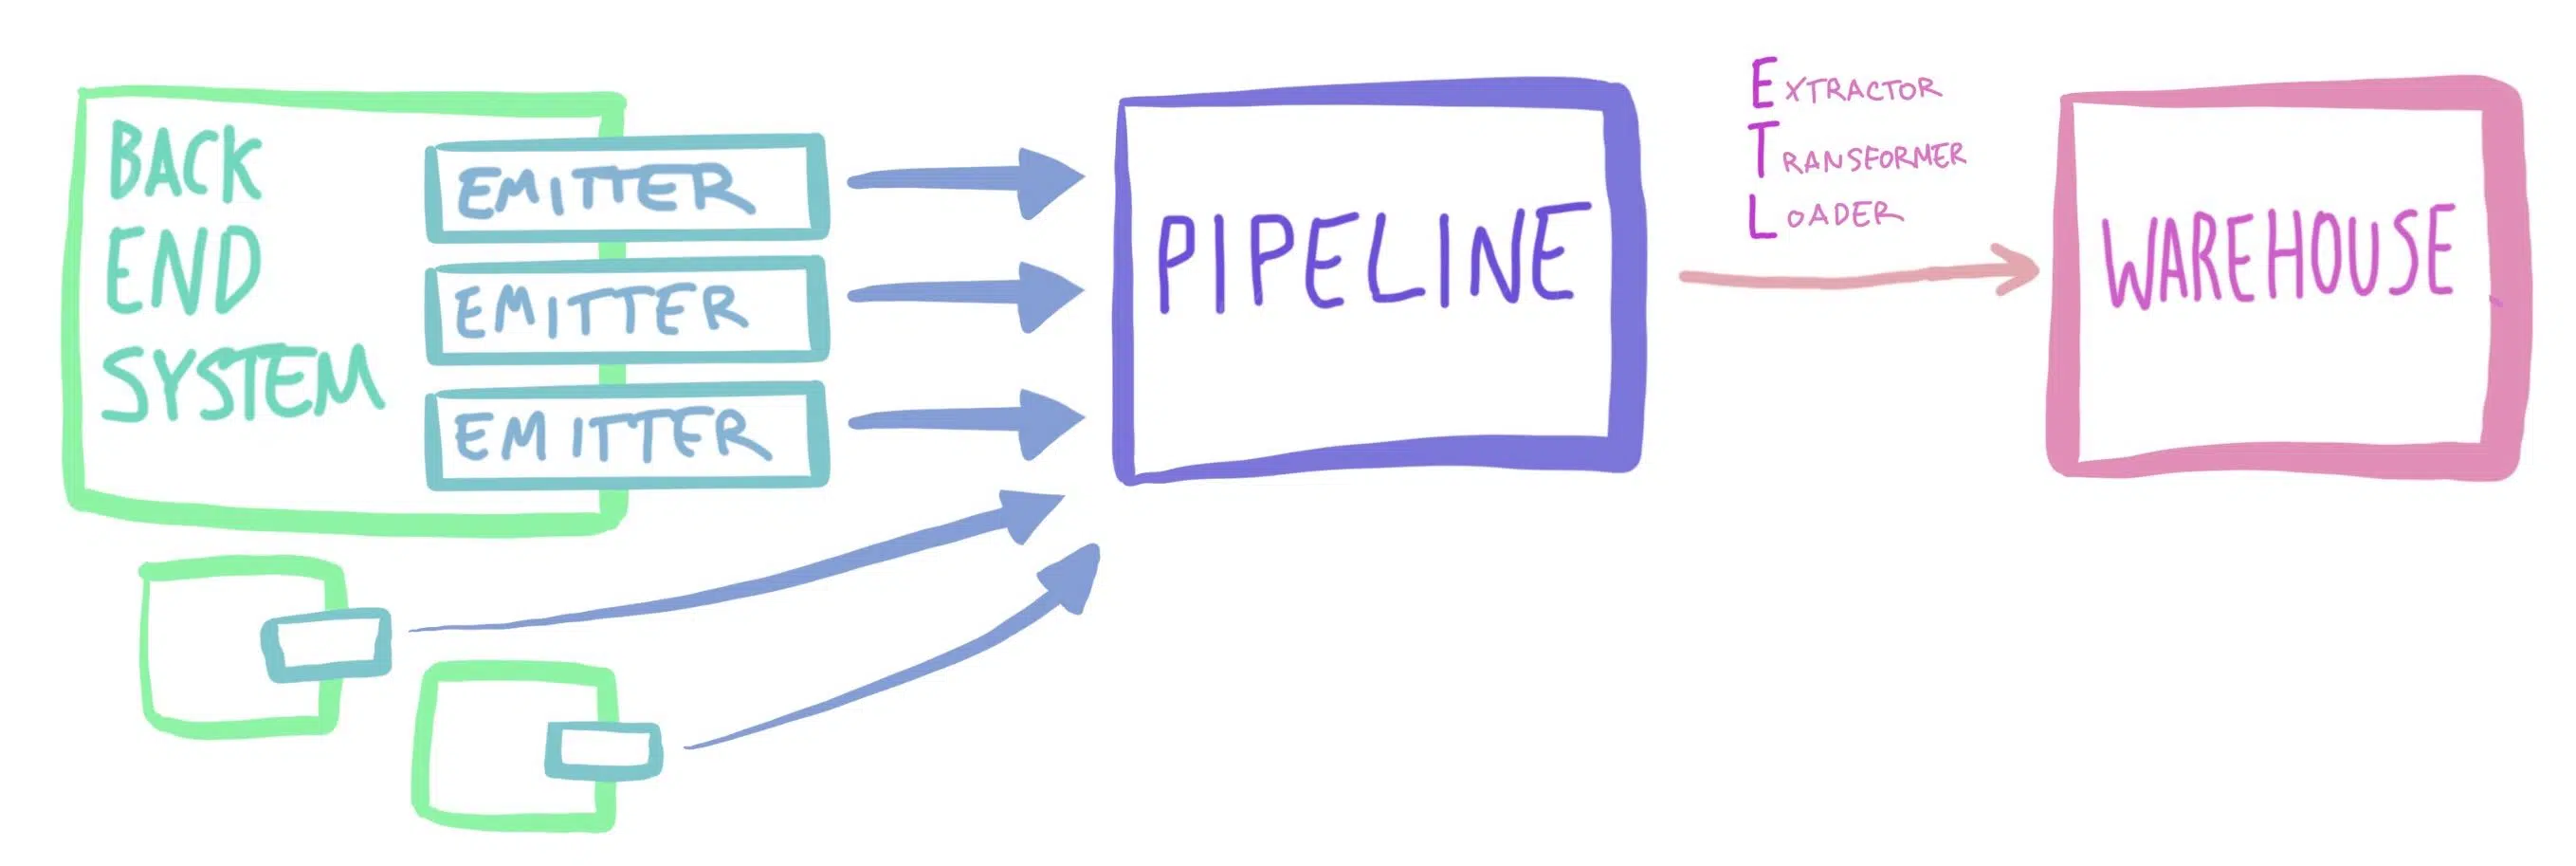 BACK
END
SYSTEM
EMITTER
EMITTER
EMITTER
PIPELINE
EXTRACTOR
TRANSFORMER
LOADER
WAREHOUSE